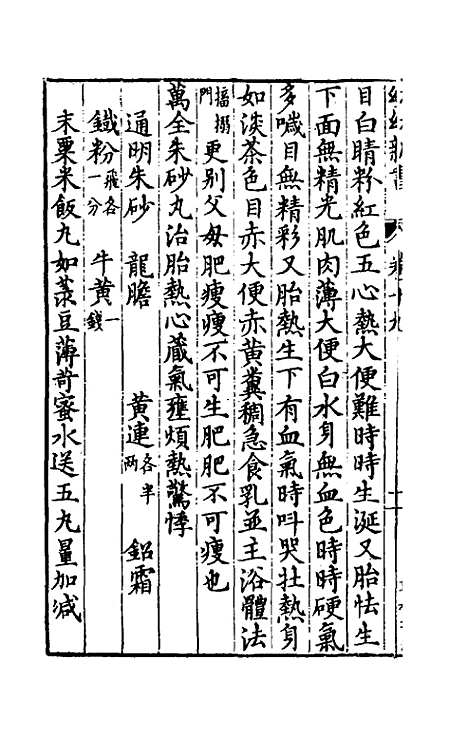 幼幼新書 卷十九
目白睛粉紅色五心熱大便難時時生涎又胎怯生
下面無精光肌肉薄大便白水身無血色時時硬氣
多噦目無精彩又胎熱生下有血氣時呌哭壮熱身
如淡茶色目赤大便赤黄糞稠急食乳並主浴體法
搐搦門更别父母肥瘦瘦不可生肥肥不可瘦也
萬全朱砂丸治胎熱心藏氣壅煩熱驚悸
通明朱砂 龍膽 黄連各半兩 鉛霜
鐵粉飛各一分 牛黄一錢
末粟米飯丸如菉豆薄荷蜜水送五丸量加减